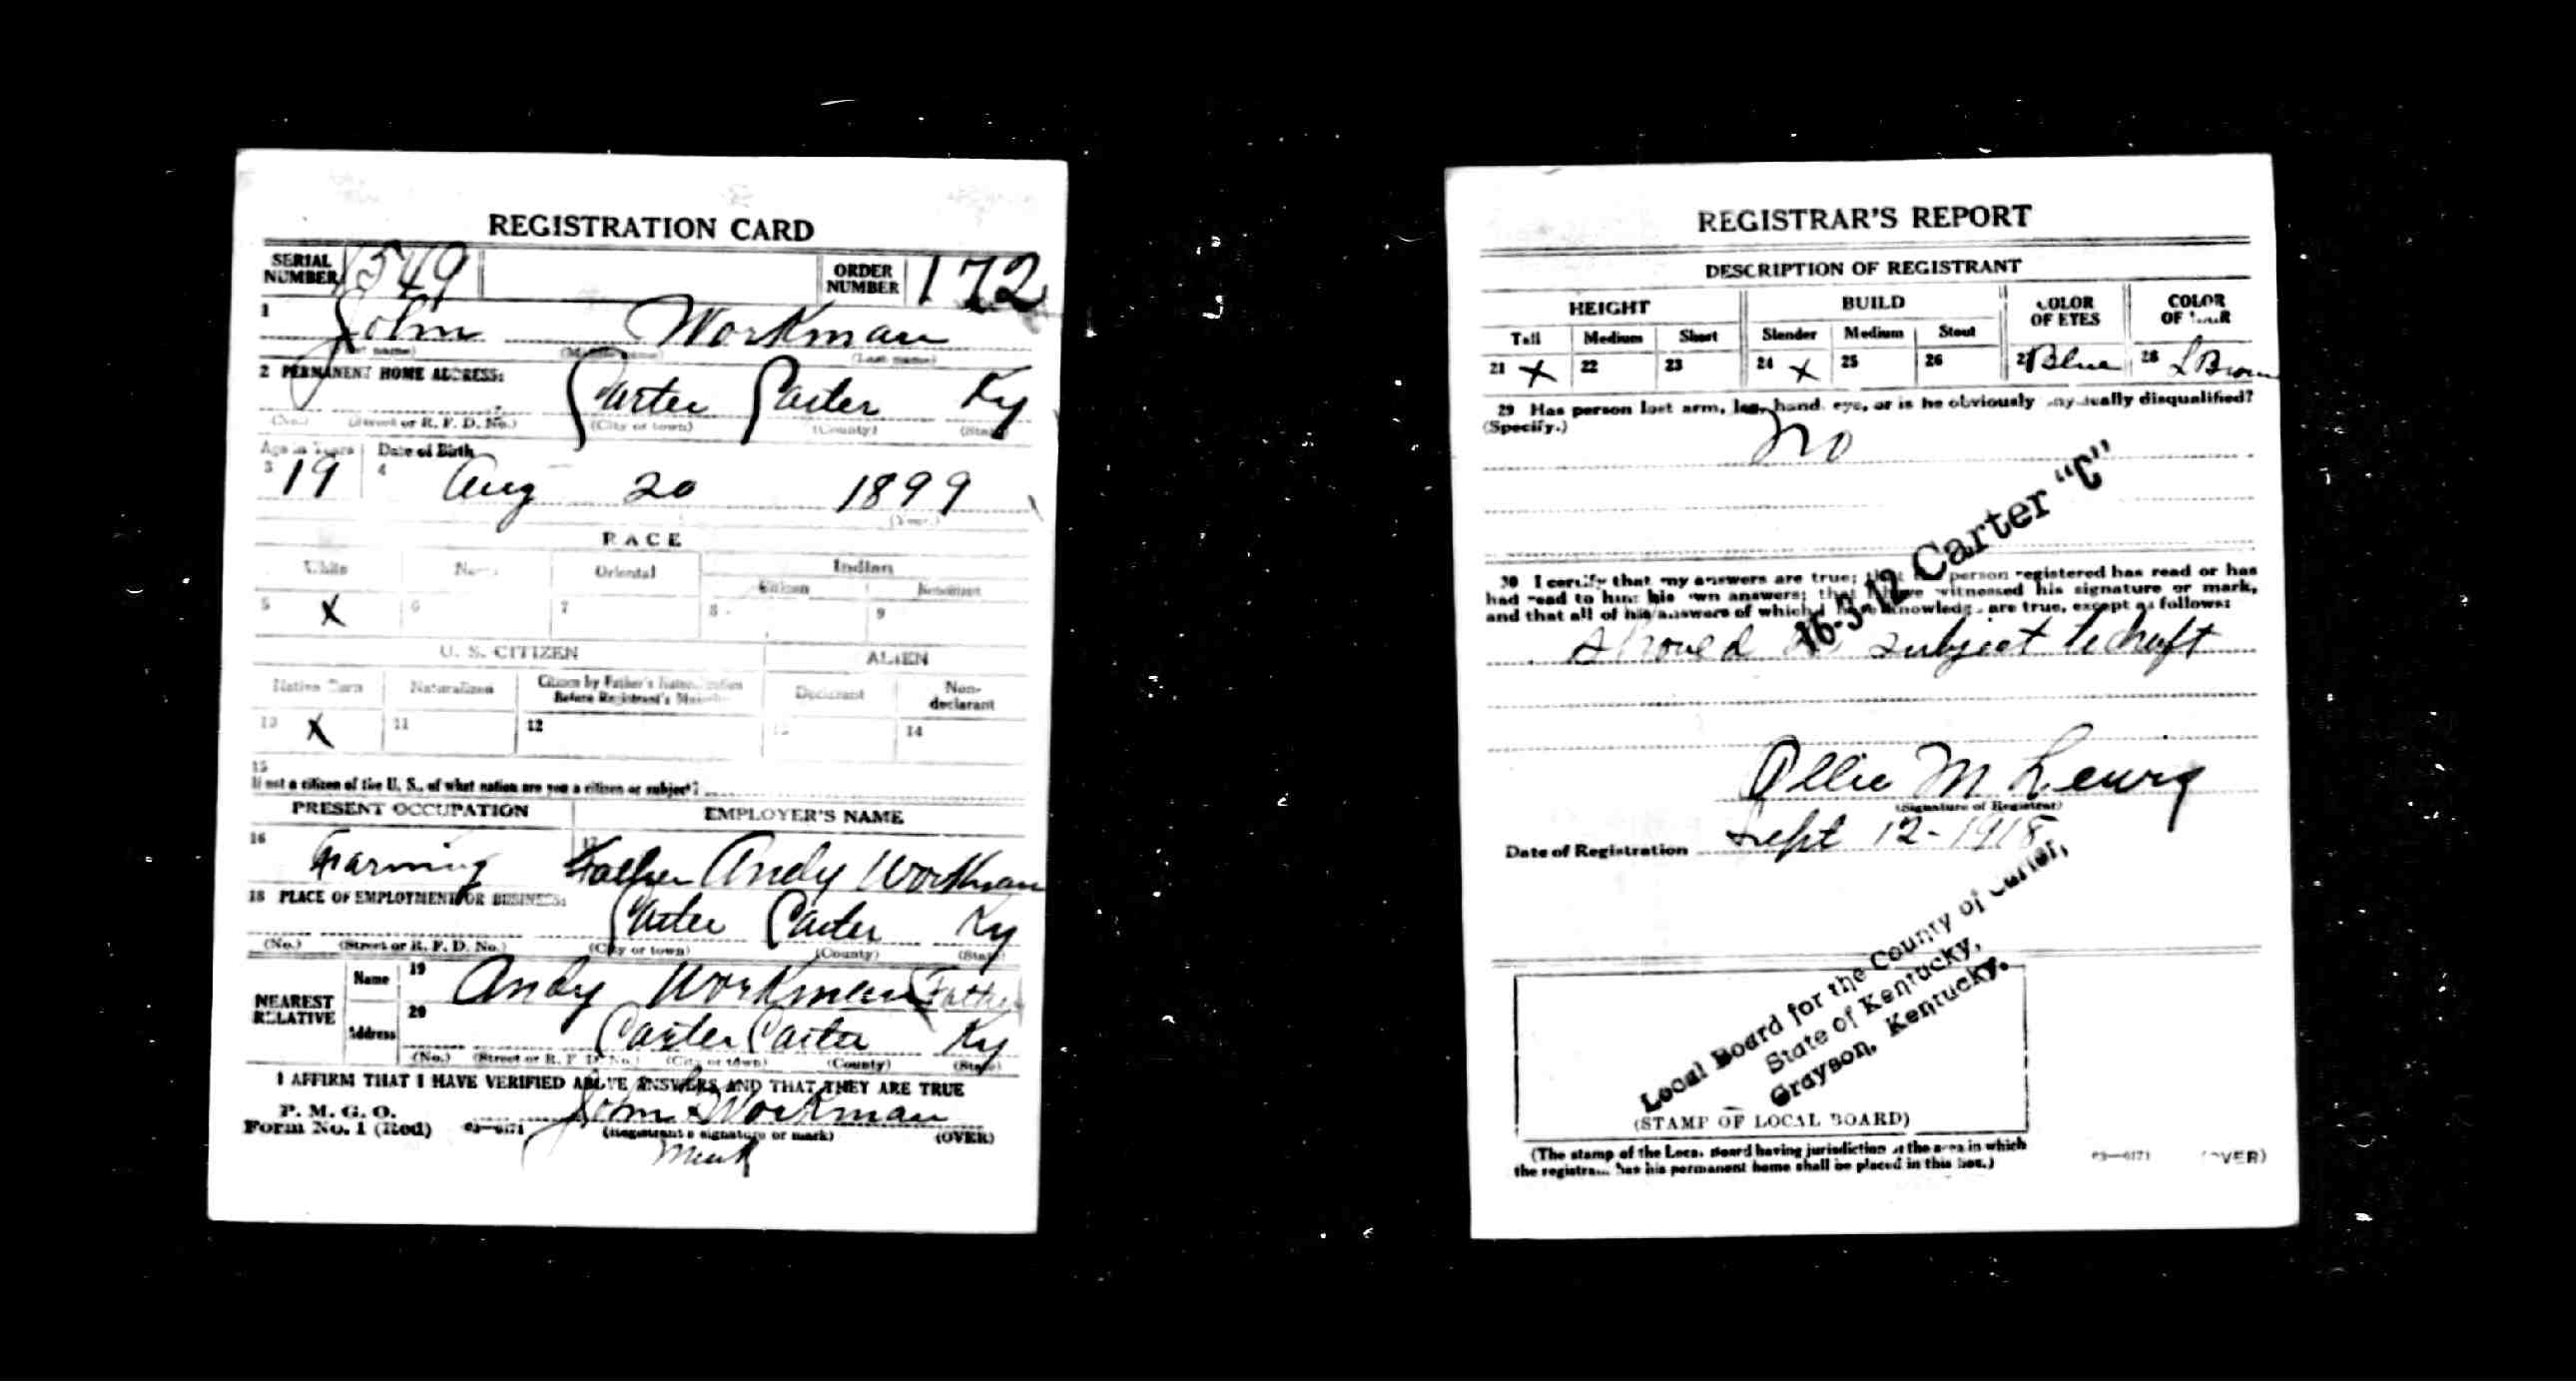 REGISTRATION CARD
SERIAL NUMBER 1549 ORDER NUMBER 172
1 John Workman
(First name) (Middle name) (Last name)
2 PERMANENT HOME ADDRESS:
Carter Carter Ky
(No.) (Street or R. F. D. No.) (City or town) (County) (State)
Age in Years Date of Birth
3 19 4 Aug 20 1899
(Year.)
RACE
White Oriental Indian
Citizen Noncitizen
5 X 6 7 8 9
U. S. CITIZEN ALIEN
Native Born Naturalized Citizen by Father's Naturalization Before Registrant's Majority Declarant Non-declarant
10 X 11 12 13 14
15
If not a citizen of the U. S., of what nation are you a citizen or subject?
PRESENT OCCUPATION EMPLOYER'S NAME
16 Farming 17 Father Andy Workman
18 PLACE OF EMPLOYMENT OR BUSINESS:
Carter Carter Ky
(No.) (Street or R. F. D. No.) (City or town) (County) (State)
NEAREST RELATIVE Name 19 Andy Workman (Father)
Address 20 Carter Carter Ky
(No.) (Street or R. F. D. No.) (City or town) (County) (State)
I AFFIRM THAT I HAVE VERIFIED ABOVE ANSWERS AND THAT THEY ARE TRUE
P. M. G. O.
Form No. 1 (Red) 03—6171 John his x Workman
(Registrant's signature or mark) (OVER)
Mark
REGISTRAR'S REPORT
DESCRIPTION OF REGISTRANT
HEIGHT BUILD COLOR OF EYES COLOR OF HAIR
Tall Medium Short Slender Medium Stout
21 X 22 23 24 X 25 26 27 Blue 28 L Brown
29 Has person lost arm, leg, hand, eye, or is he obviously physically disqualified?
(Specify.)
No
16-3-12 Carter "C"
30 I certify that my answers are true; that the person registered has read or has
had read to him his own answers; that I have witnessed his signature or mark,
and that all of his answers of which I have knowledge are true, except as follows:
Should be subject to draft
Ollie M Lewis
(Signature of Registrar)
Date of Registration Sept 12-1918
Local Board for the County of Carter,
State of Kentucky,
Grayson, Kentucky.
(STAMP OF LOCAL BOARD)
(The stamp of the Local Board having jurisdiction of the area in which
the registrant has his permanent home shall be placed in this box.)
03—6171 (OVER)